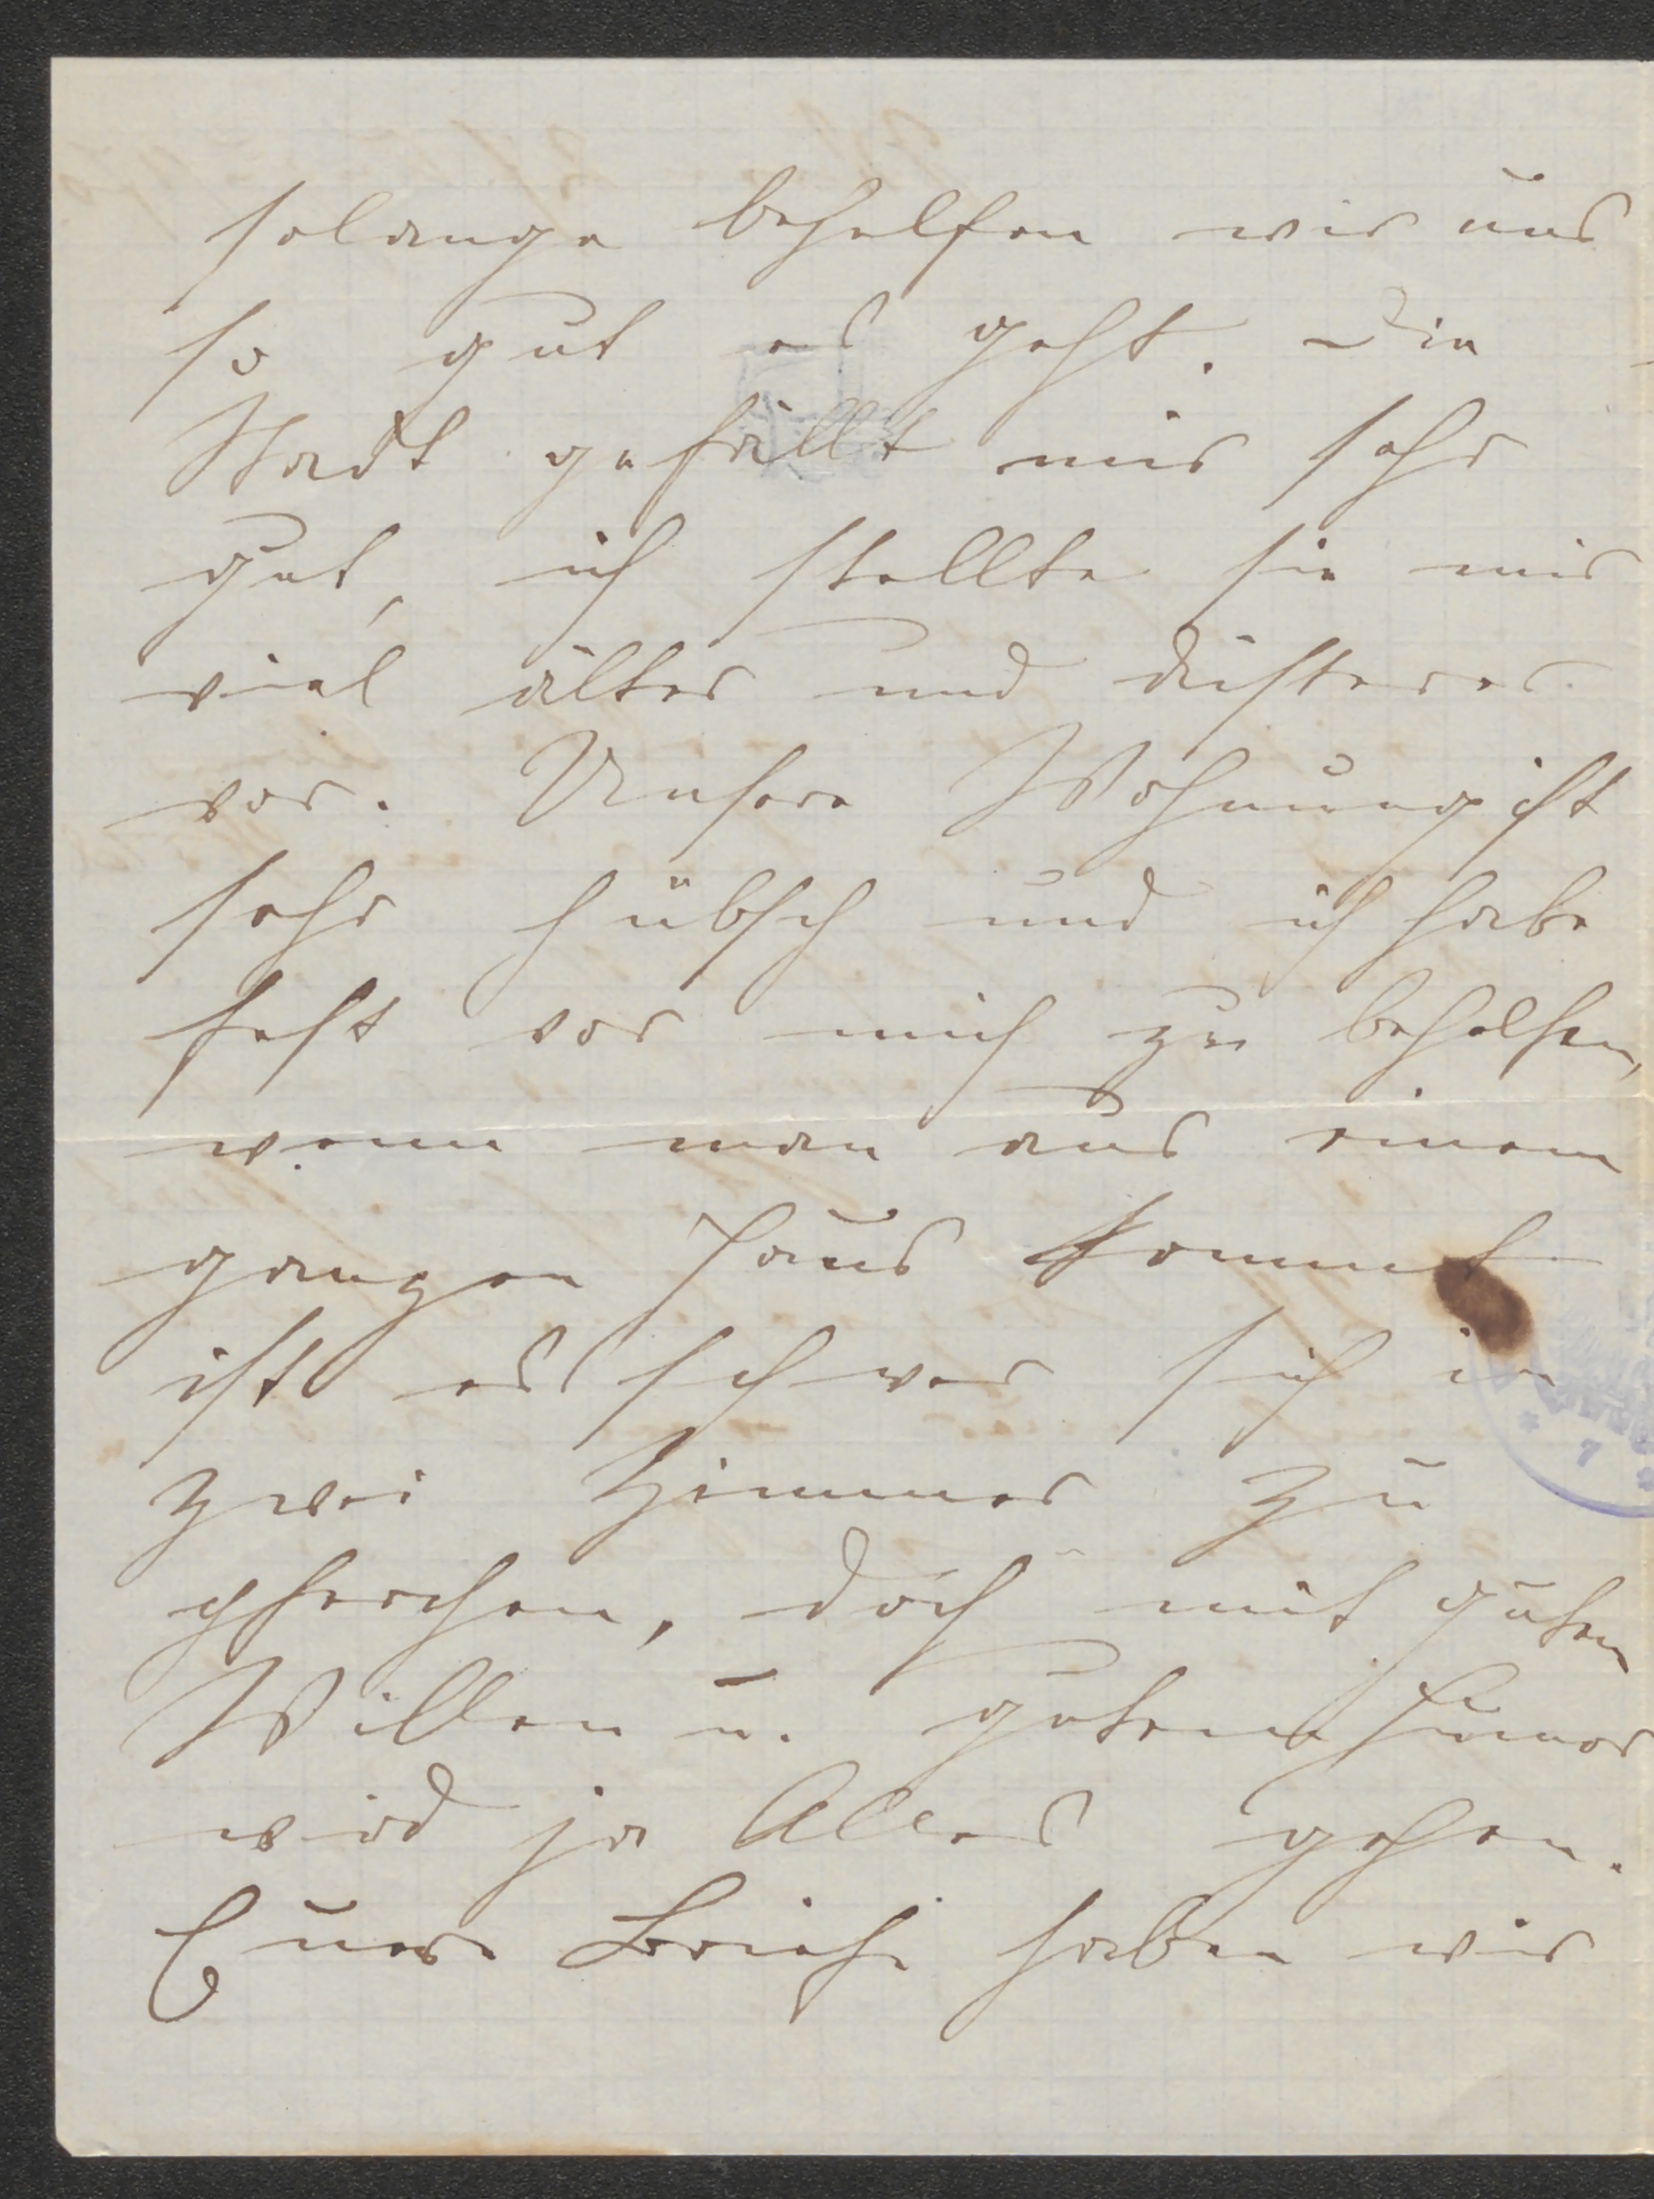 solange behelfen wir uns
so gut es geht. Die
Stadt gefällt mir sehr
gut, ich stellte sie mir
viel älter und düsterer
vor. Unsere Wohnung ist
sehr hübsch und ich habe
fest vor mich zu behelfen,
wenn man aus einem
ganzen Haus kommt
ist es schwer sich in
zwei Zimmer zu
pferchen, doch mit gutem
Willen u. gutem Humor
wird ja Alles gehen.
Euere Briefe haben wir
* 7 *